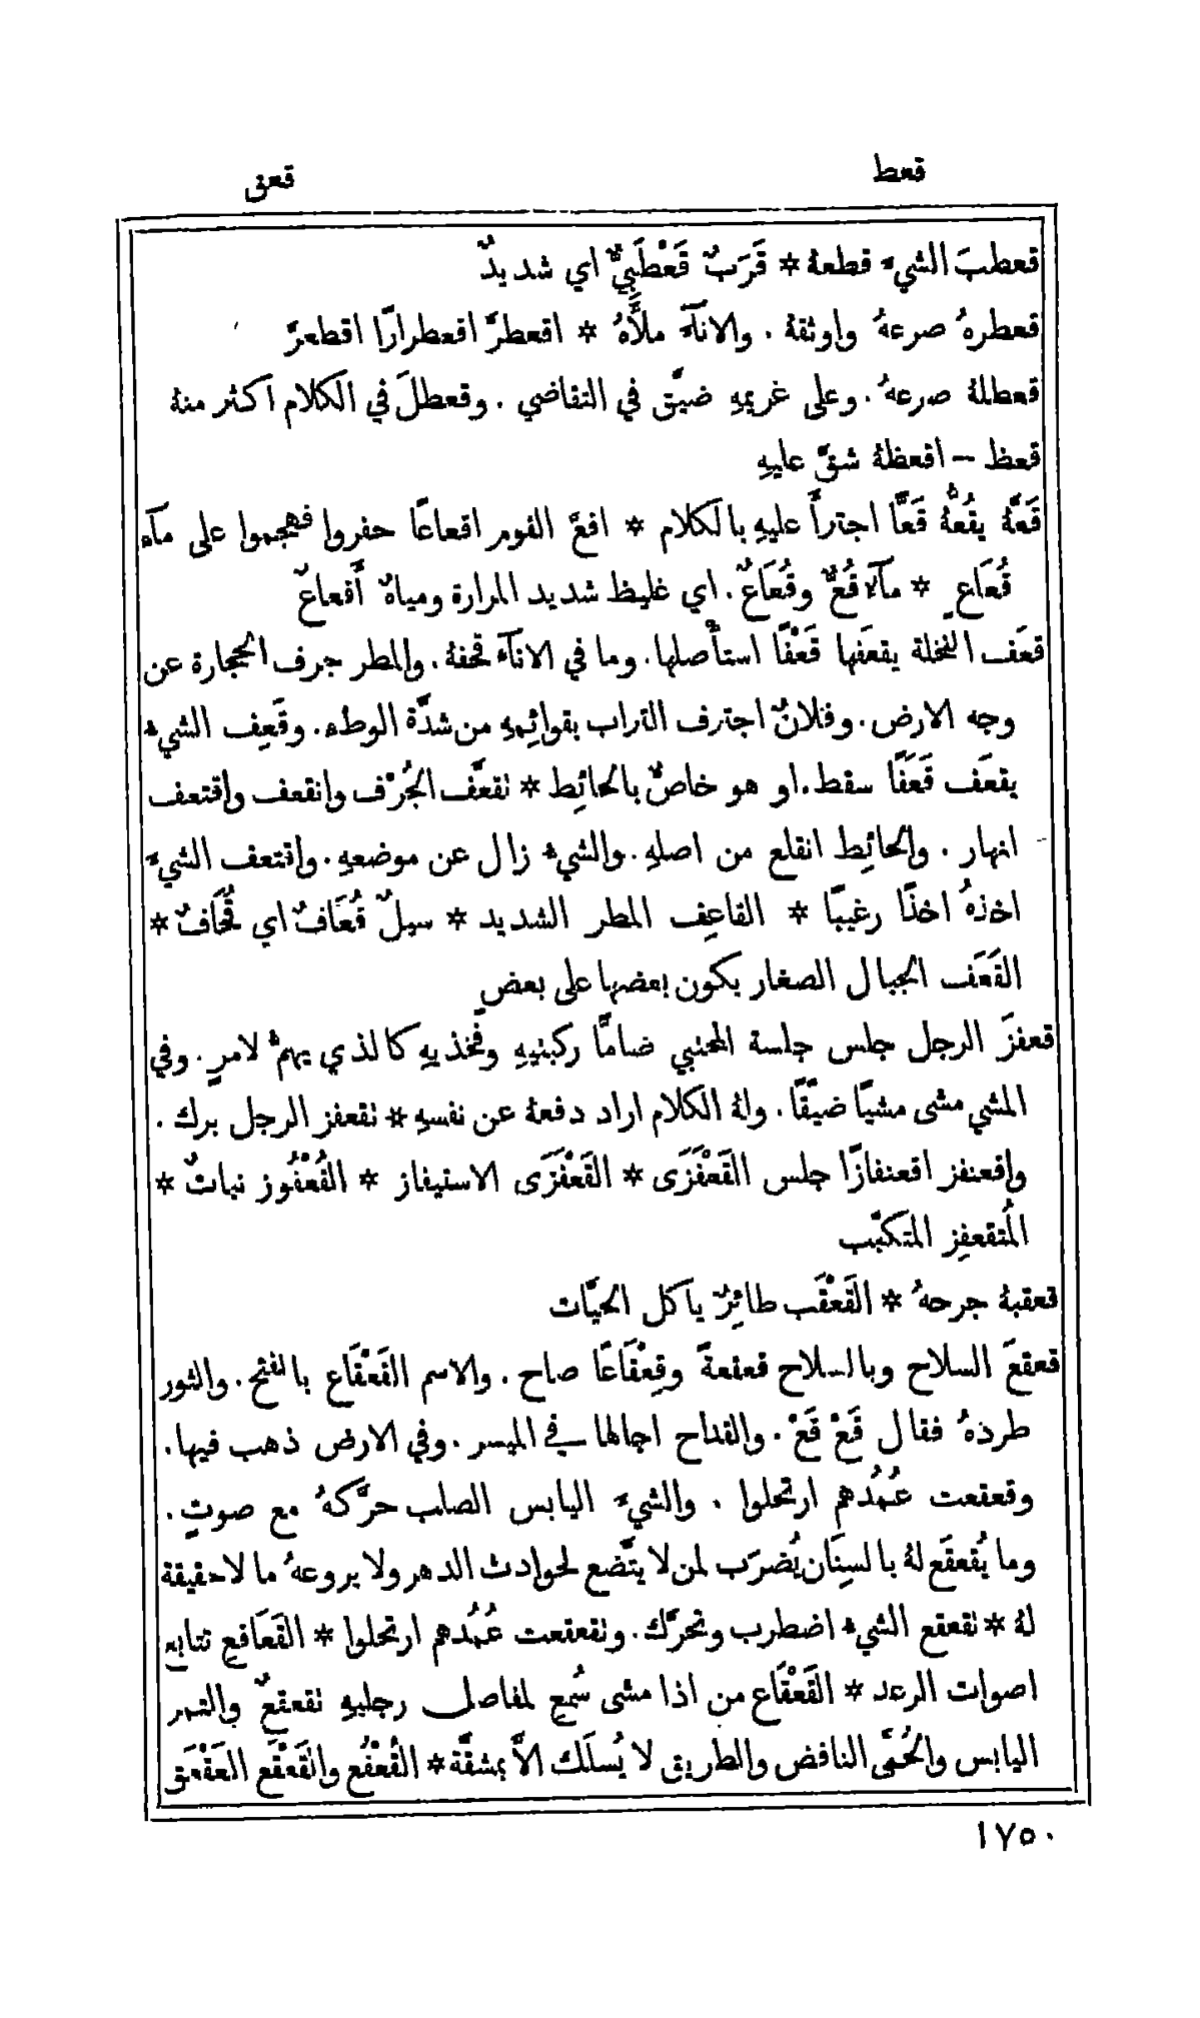 قعط
قعق
قعطبَ الشيءَ قطعهُ * قَرَبٌ قَعْطَبِيٌّ اي شديدٌ
قعطرهُ صرعهُ واوثقهُ . والاناۤءَ ملأَهُ * اقعطرَّ اقعطرارًا اقطعرَّ
قعطلهُ صرعهُ . وعلى غريمهِ ضيَّق في التقاضي . وقعطلَ في الكلام اكثر منهُ
قعظ — اقعظهُ شقَّ عليهِ
قَعَّهُ يقُعُّهُ قَعًّا اجترأَ عليهِ بالكلام * اقعَّ القوم اقعاعًا حفروا فهجموا على ماۤء
قُعَاعٍ * ماۤءٌ قُعٌّ وقُعَاعٌ . اي غليظ شديد المرارة ومياهٌ أَقعاعٌ
قعَف النخلة يقعَفها قَعْفًا استأْصلها . وما في الاناۤء قحفهُ . والمطر جرف الحجارة عن
وجه الارض . وفلانٌ اجترف التراب بقوائِمهِ من شدَّة الوطء . وقَعِف الشيءُ
يقعَف قَعَفًا سقط . او هو خاصٌّ بالحائِط * تقعَّف الجُرْف وانقعف واقتعف
انهار . والحائِط انقلع من اصلهِ . والشيءُ زال عن موضعهِ . واقتعف الشيءَ
اخذهُ اخذًا رغيبًا * القاعِف المطر الشديد * سيلٌ قُعَافٌ اي قُحَافٌ *
القَعَف الجبال الصغار يكون بعضها على بعضٍ
قعفزَ الرجل جلس جلسة المحتبي ضامًّا ركبتيهِ وفخذيهِ كالذي يهمُّ لامرٍ . وفي
المشي مشى مشيًا ضيّقًا . ولهُ الكلام اراد دفعهُ عن نفسهِ * تقعفز الرجل برك .
واقعنفز اقعنفازًا جلس القَعْفَزَى * القَعْفَزَى الاستيفاز * القُعْفُوز نباتٌ *
المُتقعفِز المتكبّب
قعقبهُ جرحهُ * القَعْقَب طائِرٌ ياكل الحيَّات
قعقعَ السلاح وبالسلاح قعقعةً وقِعْقَاعًا صاح . والاسم القَعْقَاع بالفتح . والثور
طردهُ فقال قَعْ قَعْ . والقداح اجالها في الميسر . وفي الارض ذهب فيها .
وقعقعت عُمُدُهم ارتحلوا . والشيءَ اليابس الصلب حرَّكهُ مع صوتٍ .
وما يُقعقَع لهُ بالسِنَان يُضرَب لمن لا يتَّضع لحوادث الدهر ولا يروعهُ ما لا حقيقة
لهُ * تقعقع الشيءُ اضطرب وتحرَّك . وتقعقعت عُمُدُهم ارتحلوا * القَعَاقِع تتابع
اصوات الرعد * القَعْقَاع من اذا مشى سُمِع لمفاصل رجليهِ تقعقعٌ والتمر
اليابس والحُمَّى النافض والطريق لا يُسلَك الاَّ بمشقَّة * القُعْقُع والقَعْقَع العَقْعَق
١٧٥٠